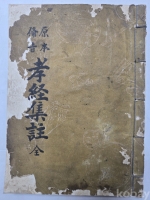 原本
備旨
孝經集註 全
kobay